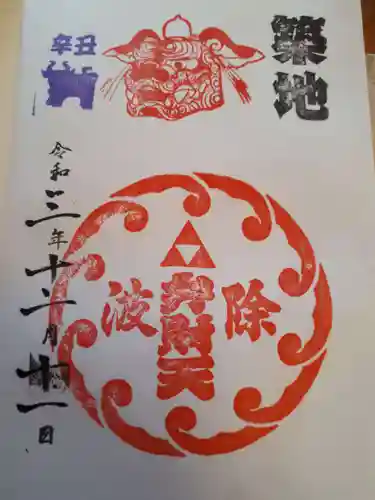 築地
辛丑
波除
弁財天
令和三年十二月廿一日